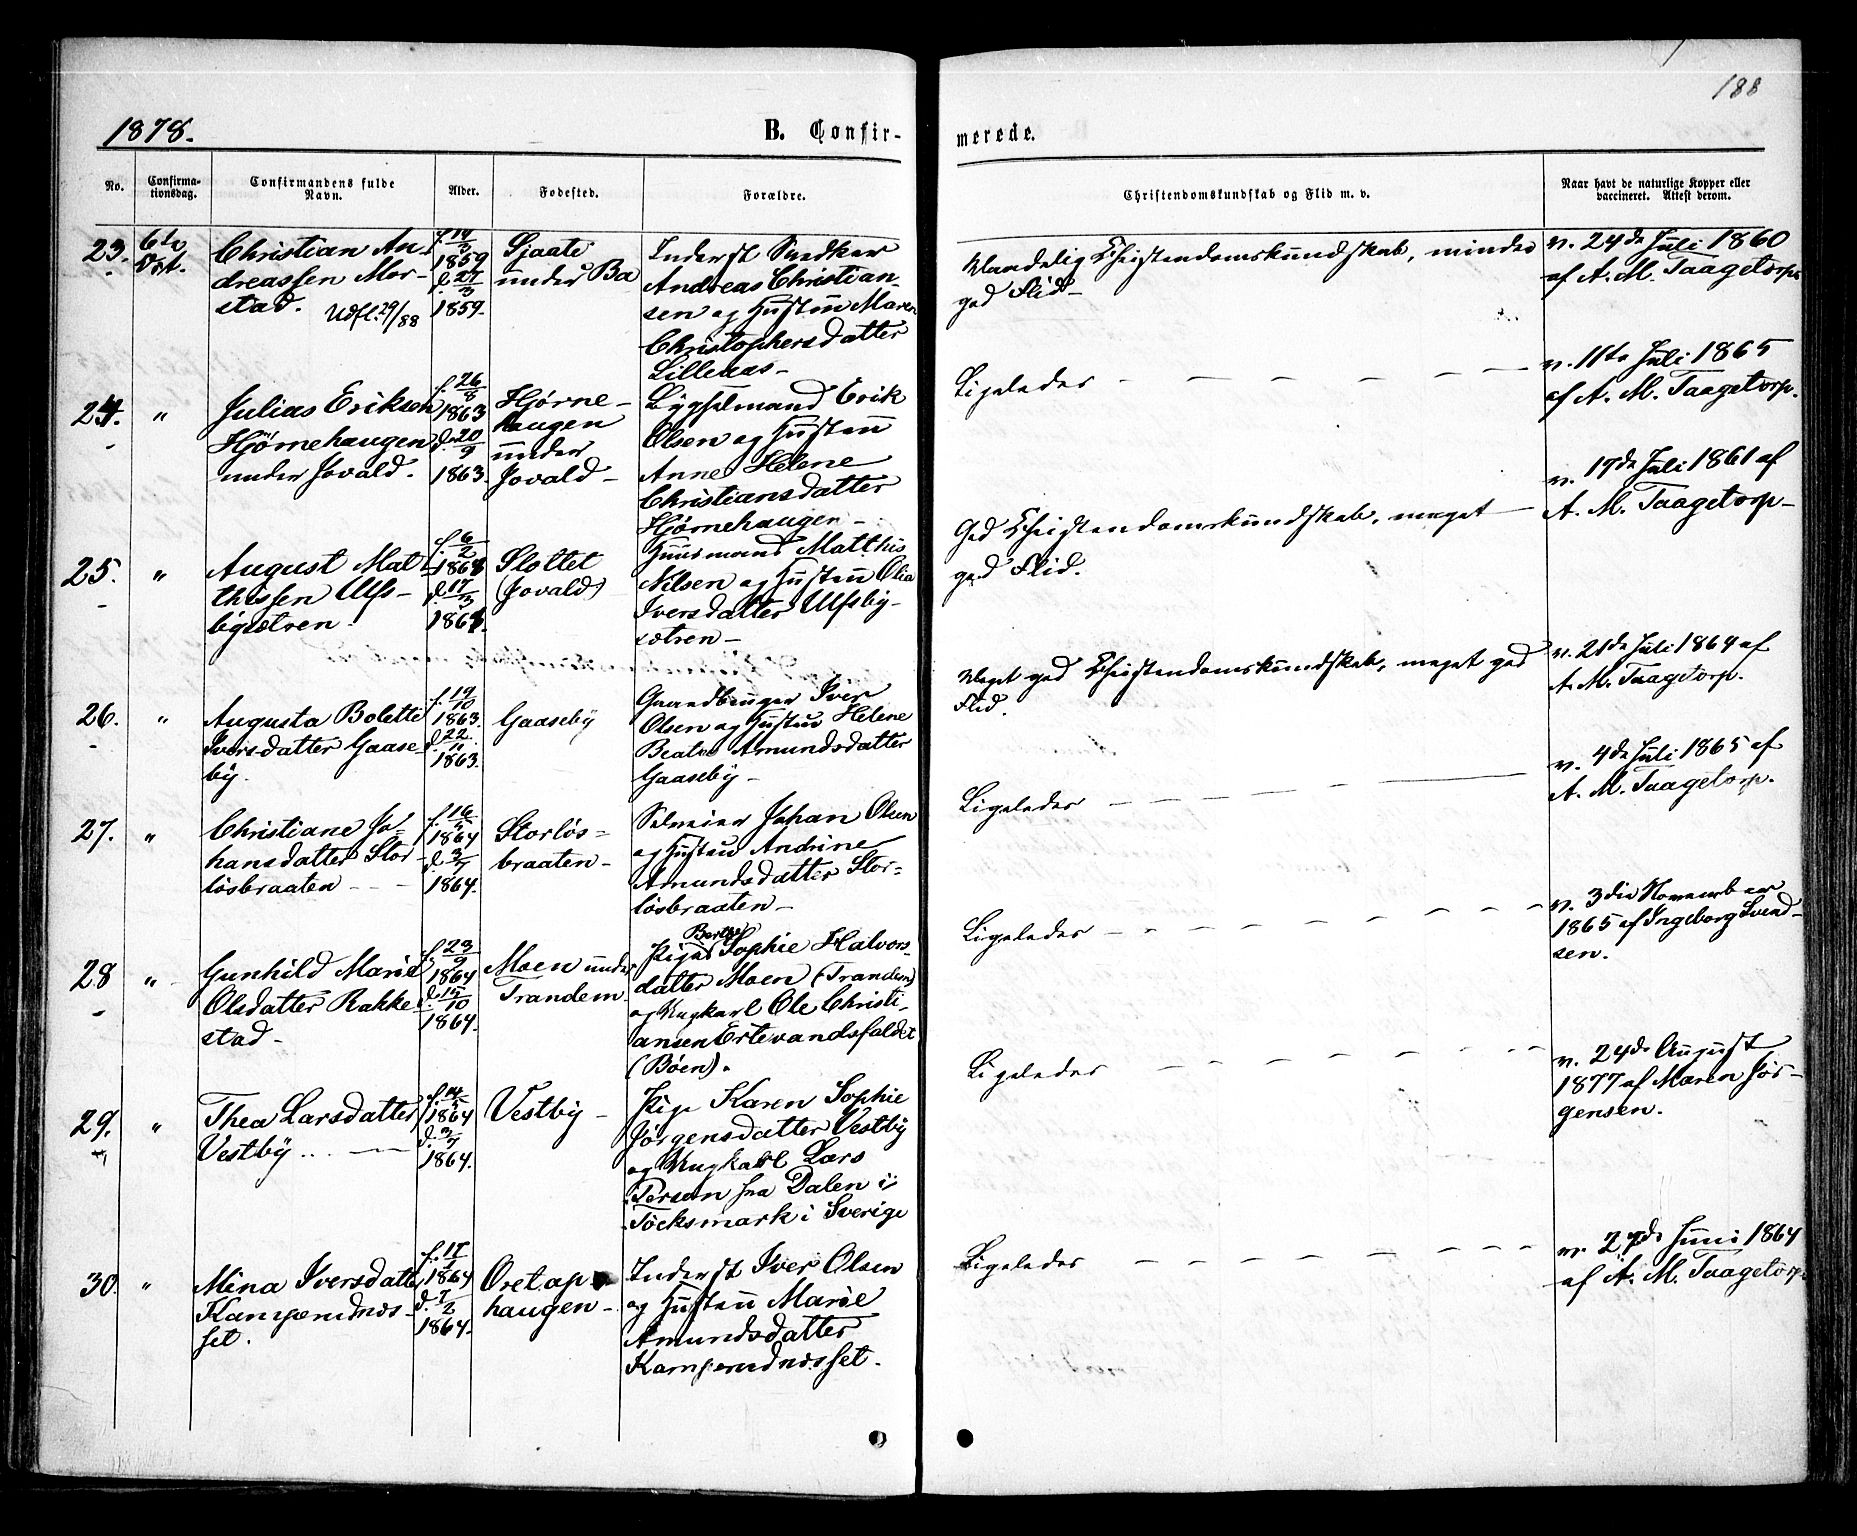 188
1878.
B. Confir-
merede.
No.
Confirma-
tionsdag.
Confirmandens fulde
Navn.
Alder.
Fodested.
Forældre.
Christendomskundskab og Flid m. v.
Naar havt de naturlige Kopper eller
vaccineret. Attest derom.
23.
6te
Oct.
Christian An-
dreassen Mor-
stad. Udfl. 29/88
f. 14/3
1859
d. 27/3
1859.
Sjaate
under Ba
Inderst Snedker
Andreas Christian-
sen og Hustru Maren
Christophersdatter
Lilleaas-
Maadelig Christendomskundskab, mindre
god Flid-
v. 24de Juli 1860
af A. M. Taagetorp.
24.
"
Julius Eriksen
Hjørnehaugen
under Jovald.
f. 26/8
1863
d. 20/9
1863.
Hjørne-
haugen
under
Jovald-
Bygselmand Erik
Olsen og Hustru
Anne Helene
Christiansdatter
Hjørnehaugen-
Ligeledes - - -
v. 11te Juli 1865
af A. M. Taagetorp.
25.
"
August Mat-
thissen Ulfs-
bysætren.
f. 6/2
1861
d. 17/3
1861.
Slottet
(Jovald)
Huusmand Matthis
Nilsen og Hustru Olia
Iversdatter Ulfsby-
sætren-
God Christendomskundskab, meget
god Flid.
v. 17de Juli 1861 af
A. M. Taagetorp-
26.
"
Augusta Bolette
Iversdatter Gaase-
by.
f. 19/10
1863.
d. 22/11
1863.
Gaaseby
Gaardbruger Iver
Olsen og Hustru Helene
Beate Amundsdatter
Gaaseby-
Meget god Christendomskundskab, meget god
Flid.
v. 21de Juli 1864 af
A. M. Taagetorp.
27.
"
Christiane Jo-
hansdatter Stor-
løsbraaten - - -
f. 16/5
1864
d. 3/7
1864.
Storløs-
braaten-
Selveier Johan Olsen
og Hustru Andrine
Amundsdatter Stor-
løsbraaten-
Ligeledes - - -
v. 4de Juli 1865 af
A. M. Taagetorp.
28
"
Gunhild Marie
Olsdatter Rakke-
stad-
f. 23/9
1864
d. 15/10
1864.
Moen under
Trandem
Berthe
Pige Sophie Halvors-
datter Moen (Trandem)
og Ungkarl Ole Christi-
ansen Ertevandsfaldet
(Bøen).
Ligeledes - - -
v. 3die November
1865 af Ingeborg Svend-
sen.
29.
"
Thea Larsdatter
Vestby ... -
f. 14/5
1864
d. 3/7
1864.
Vestby-
Pige Karen Sophie
Jørgensdatter Vestby
og Ungkarl Lars
Persen fra Dalen i
Töcksmark i Sverige
Ligeledes - - -
v. 24de August
1877 af Maren Jør-
gensen.
30.
"
Mina Iversdatter
Kampenæs-
set.
f. 17/1
1864
d. 7/2
1864.
Oretop-
haugen-
Inderst Iver Olsen
og Hustru Marie
Amundsdatter
Ligeledes - - -
v. 27de Juni 1864
af A. M. Taagetorp